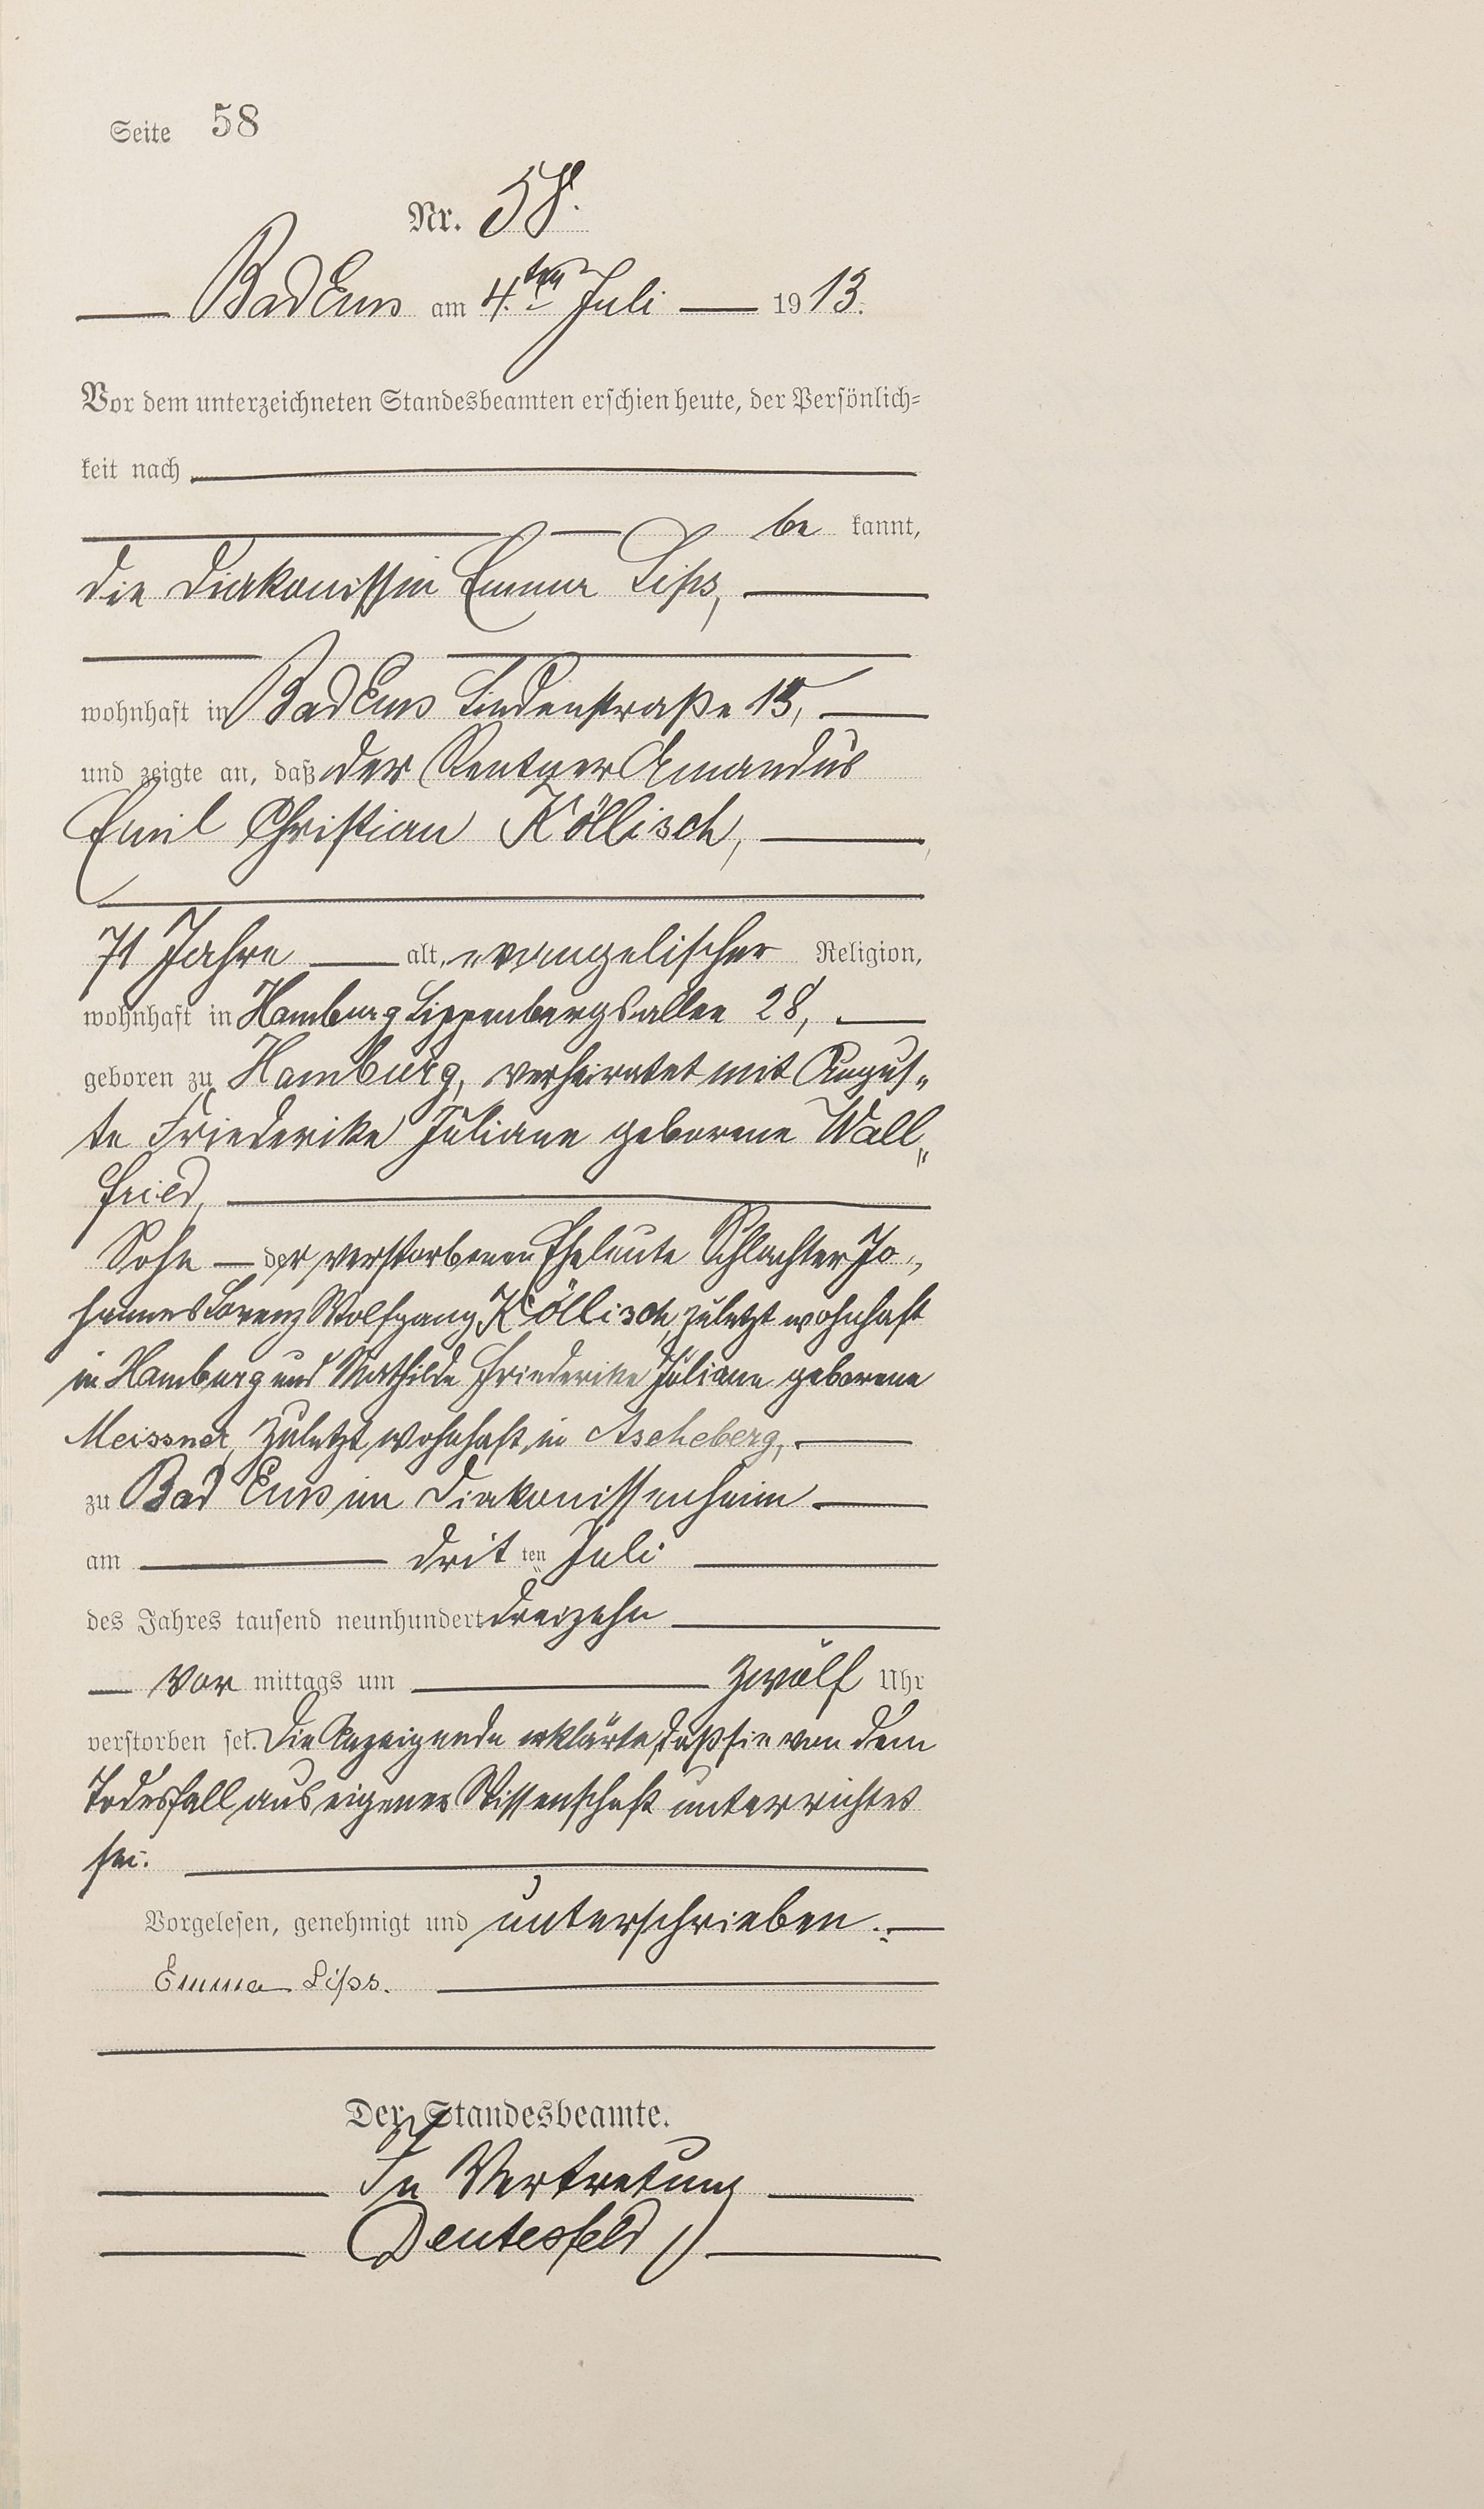 Seite 58
Nr. 58.
Bad Ems am 4.ten Juli 1913.
Vor dem unterzeichneten Standesbeamten erschien heute, der Persönlich=
keit nach
be kannt,
die Diakonissin Emma Lips,
wohnhaft in Bad Ems Lindenstraße 15,
und zeigte an, daß der Rentner Amandus
Emil Christian Köllisch,
71 Jahre alt, evangelischer Religion,
wohnhaft in Hamburg 28,
geboren zu Hamburg, verheiratet mit Augus„
te Friederike Juliane geborene Wall„
fried,
Sohn der verstorbenen Eheleute Schlachter Jo„
hannes Lorenz Wolfgang Köllisch, zuletzt wohnhaft
in Hamburg und Mathilde Friederike Juliane geborene
Meissner, zuletzt wohnhaft in Ascheberg,
zu Bad Ems im Diakonissenheim
am drit ten Juli
des Jahres tausend neunhundert dreizehn
Vor mittags um zwölf Uhr
verstorben sei. Die Anzeigende erklärte, daß sie von dem
Todesfall aus eigener Wissenschaft unterrichtet
sei.
Vorgelesen, genehmigt und unterschrieben.
Emma Lips.
Der Standesbeamte.
In Vertretung
Deutesfeld